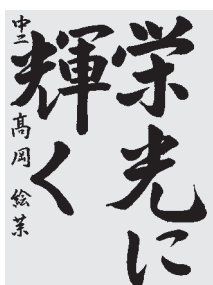 栄光に
輝く
中二 高岡 絵菜